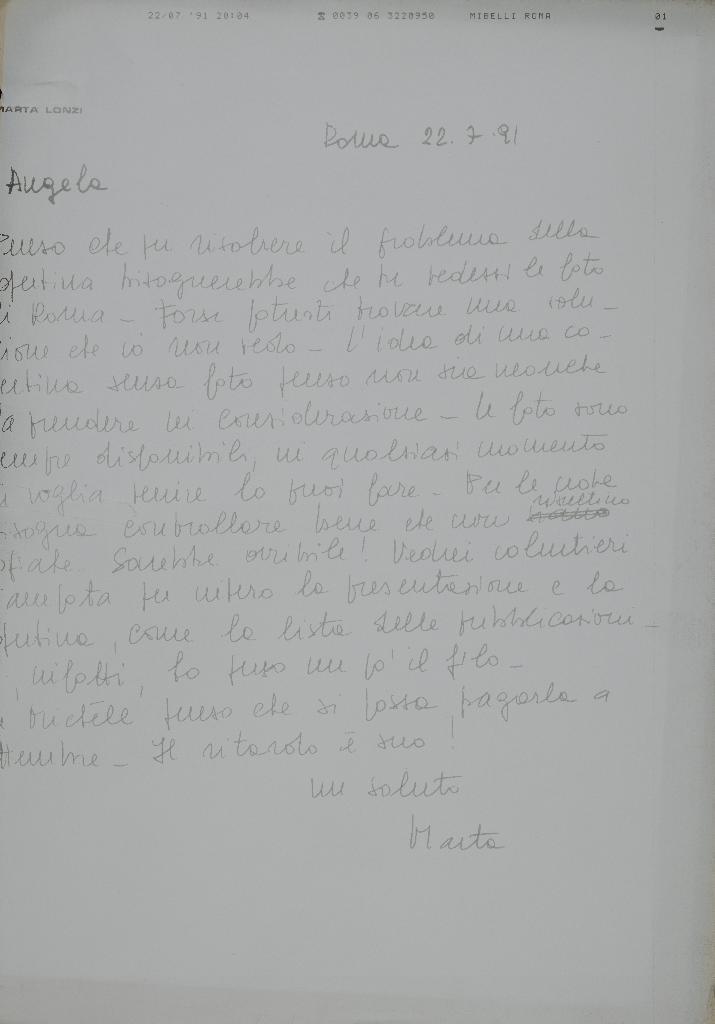 22/07 '91 20:04 ☎ 0039 06 3220950 MIBELLI ROMA 01
MARTA LONZI
Roma 22.7.91
Angela
Penso che per risolvere il problema della
opertina bisognerebbe che tu vedessi le foto
i Roma - Forse potresti trovare una solu-
ione che io non vedo - L'idea di una co-
ertina senza foto penso non sia neanche
a prendere in considerazione - Le foto sono
empre disponibili, in qualsiasi momento
i voglia venire lo puoi fare - Per le note
isogna controllare bene che non risultino
ofiate. Sarebbe orribile! Vedrei volentieri
ampata per intero la presentazione e la
opertina, come la lista delle pubblicazioni -
, infatti, ho perso un po' il filo -
Michèle penso che si possa pagarla a
ttembre - Il ritardo è suo!
un saluto
Marta